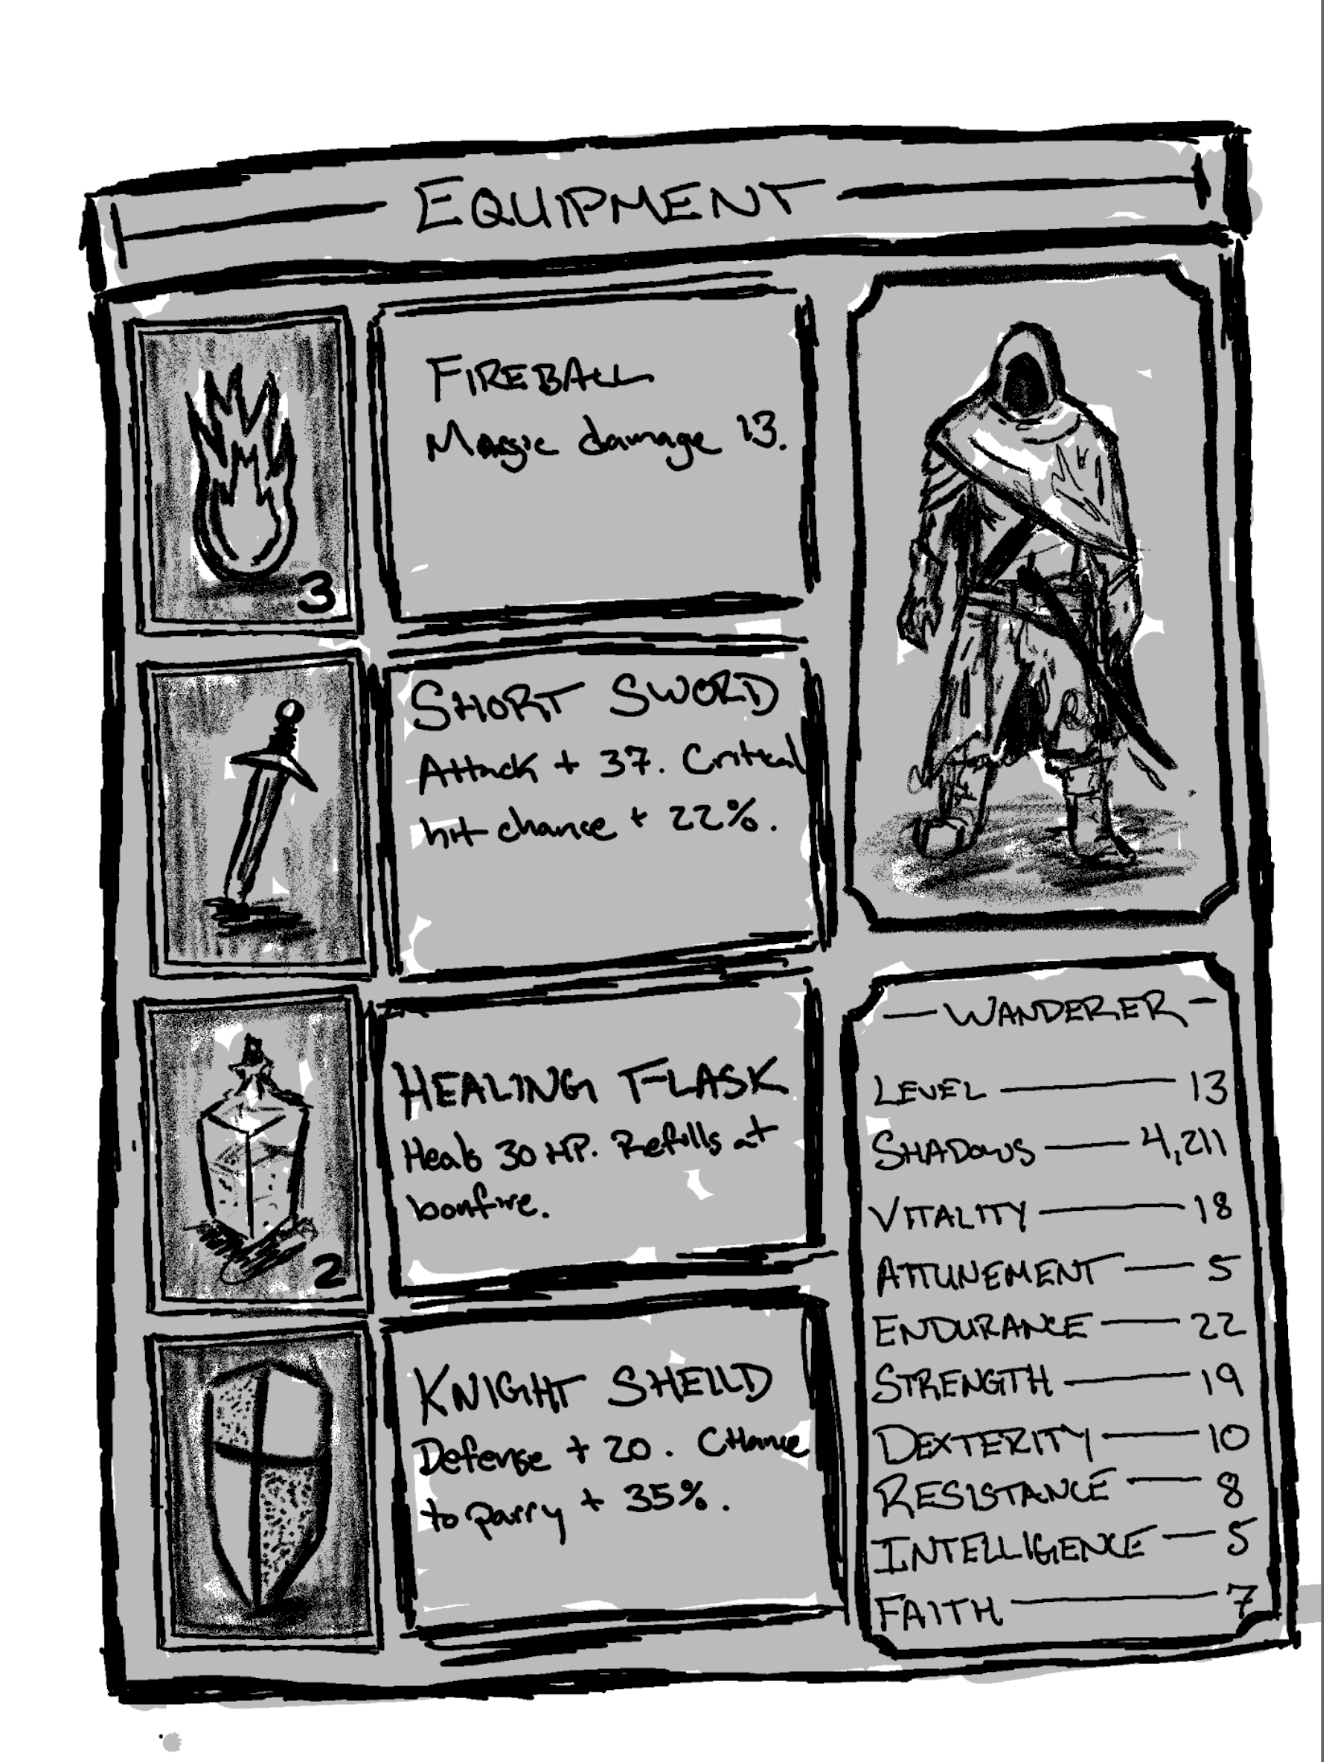 EQUIPMENT
3
FIREBALL
Magic damage 13.
SHORT SWORD
Attack + 37. Critical
hit chance + 22%.
2
HEALING FLASK
Heals 30 HP. Refills at
bonfire.
KNIGHT SHEILD
Defense + 20. Chance
to parry + 35%.
— WANDERER —
LEVEL — 13
SHADOWS — 4,211
VITALITY — 18
ATTUNEMENT — 5
ENDURANCE — 22
STRENGTH — 19
DEXTERITY — 10
RESISTANCE — 8
INTELLIGENCE — 5
FAITH — 7